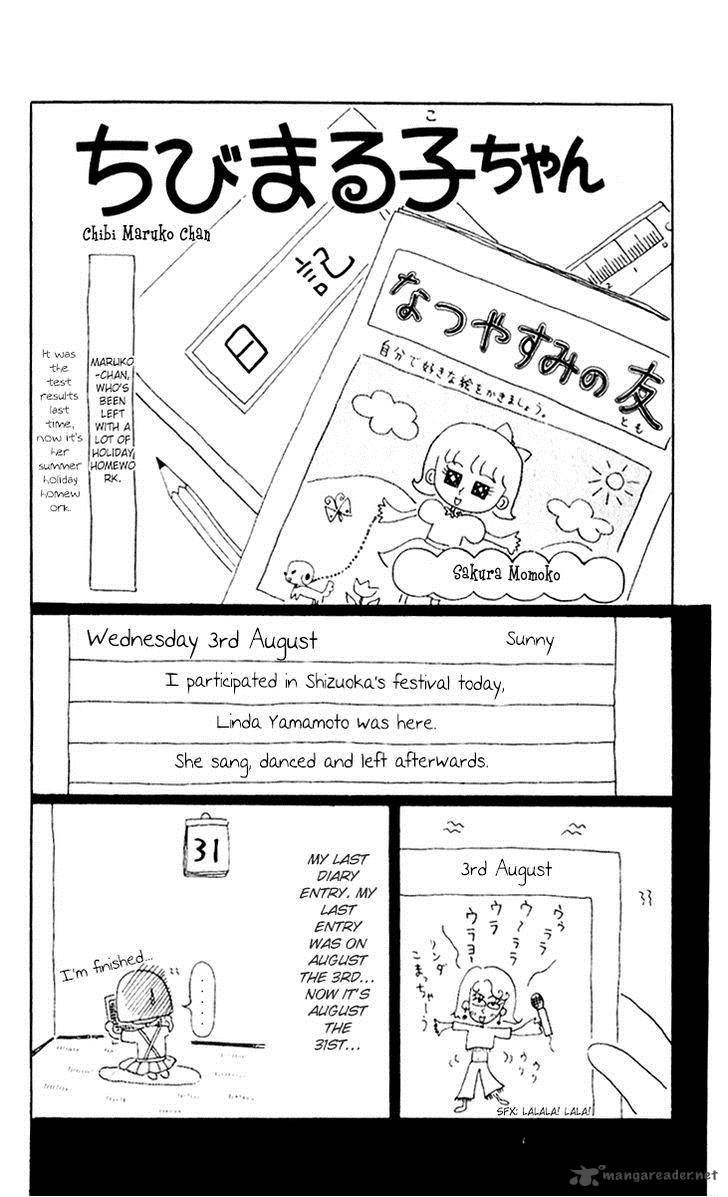 ちびまる子ちゃん
こ
Chibi Maruko Chan
日記
なつやすみの友
とも
自分で好きな絵をかきましょう。
It was
the
test
results
last
time,
now it's
her
summer
holiday
homew
ork.
MARUKO
-CHAN,
WHO'S
BEEN
LEFT
WITH A
LOT OF
HOLIDAY
HOMEWO
RK.
2
Sakura Momoko
Wednesday 3rd August
Sunny
I participated in Shizuoka's festival today,
Linda Yamamoto was here.
She sang, danced and left afterwards.
31
I'm finished...
MY LAST
DIARY
ENTRY. MY
LAST
ENTRY
WAS ON
AUGUST
THE 3RD...
NOW IT'S
AUGUST
THE
31ST...
3rd August
ウゥ
ララ
ウ〜ララ
ウラ
ウラヨー
リンダ
こまっちゃーう
SFX: LALALA! LALA!
mangareader.net